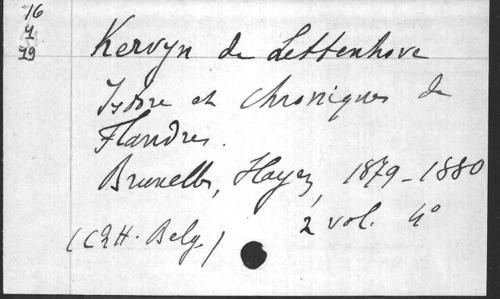 16
7
79
Kervyn de Lettenhove
Istore et chroniques de
Flandres.
Bruxelles, Hayez, 1879-1880
2 vol. 4°
(CRH. Belg.)